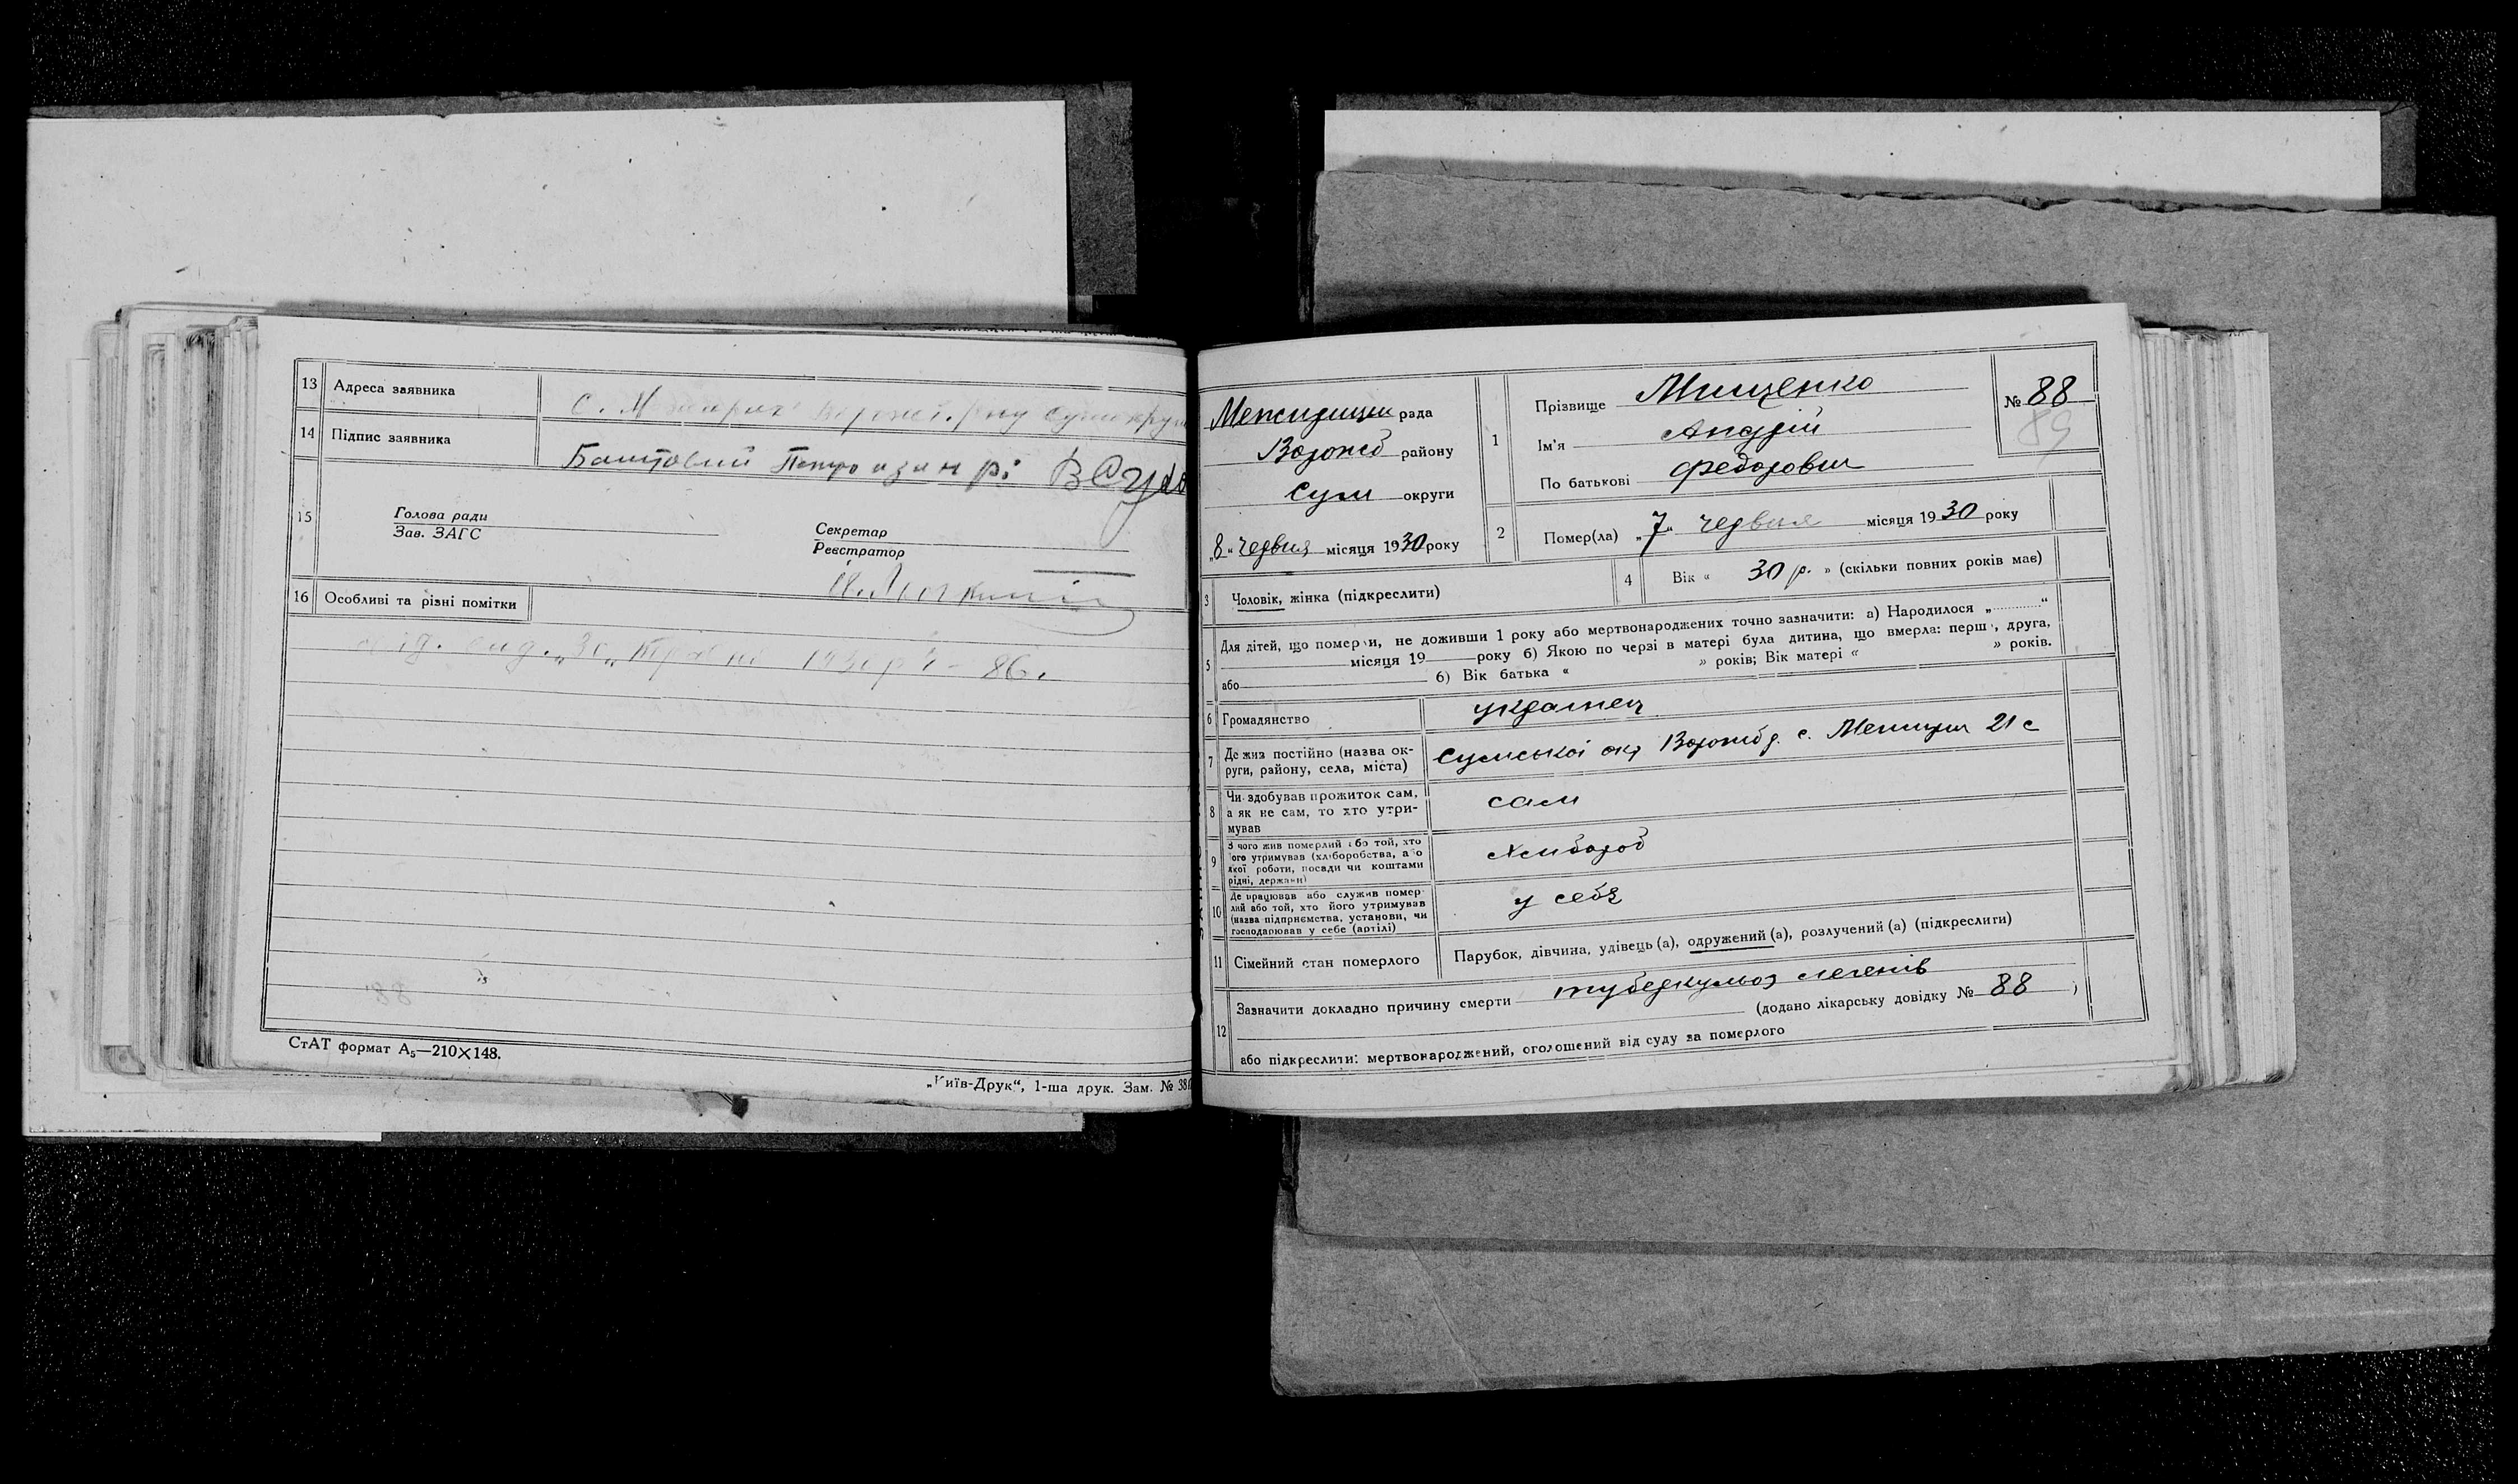 13 Адреса заявника
14 Підпис заявника
Баштовий Петро
15 Голова ради
Зав. ЗАГС
Секретар
Реєстратор
16 Особливі та різні помітки
1930 р. 86.
СтАТ формат А₅—210×148.
„Київ-Друк“, 1-ша друк. Зам. № 38
рада
Ворожб району
Сум округи
„8“ червня місяця 1930 року
1 Прізвище Мищенко
Ім'я Андрій
По батькові Федорович
№ 88
89
2 Помер(ла) „7“ червня місяця 1930 року
3 Чоловік, жінка (підкреслити)
4 Вік « 30 р. » (скільки повних років має)
5 Для дітей, що померли, не доживши 1 року або мертвонароджених точно зазначити: а) Народилося „ “
місяця 19 року б) Якою по черзі в матері була дитина, що вмерла: перша, друга,
або б) Вік батька « » років; Вік матері « » років.
6 Громадянство украінец
7 Де жив постійно (назва ок-
руги, району, села, міста)
Сумської окр Ворожб р. с. 21 с
8 Чи здобував прожиток сам,
а як не сам, то хто утри-
мував
сам
9 З чого жив померлий або той, хто
його утримував (хліборобства, або
якої роботи, посади чи коштами
рідні, держави)
хлибороб
10 Де працював або служив помер-
лий або той, хто його утримував
(назва підприємства, установи, чи
господарював у себе (артілі)
у себе
11 Сімейний стан померлого
Парубок, дівчина, удівець (а), одружений (а), розлучений (а) (підкреслити)
12 Зазначити докладно причину смерти туберкульоз легенів
(додано лікарську довідку № 88 )
або підкреслити: мертвонароджений, оголошений від суду за померлого